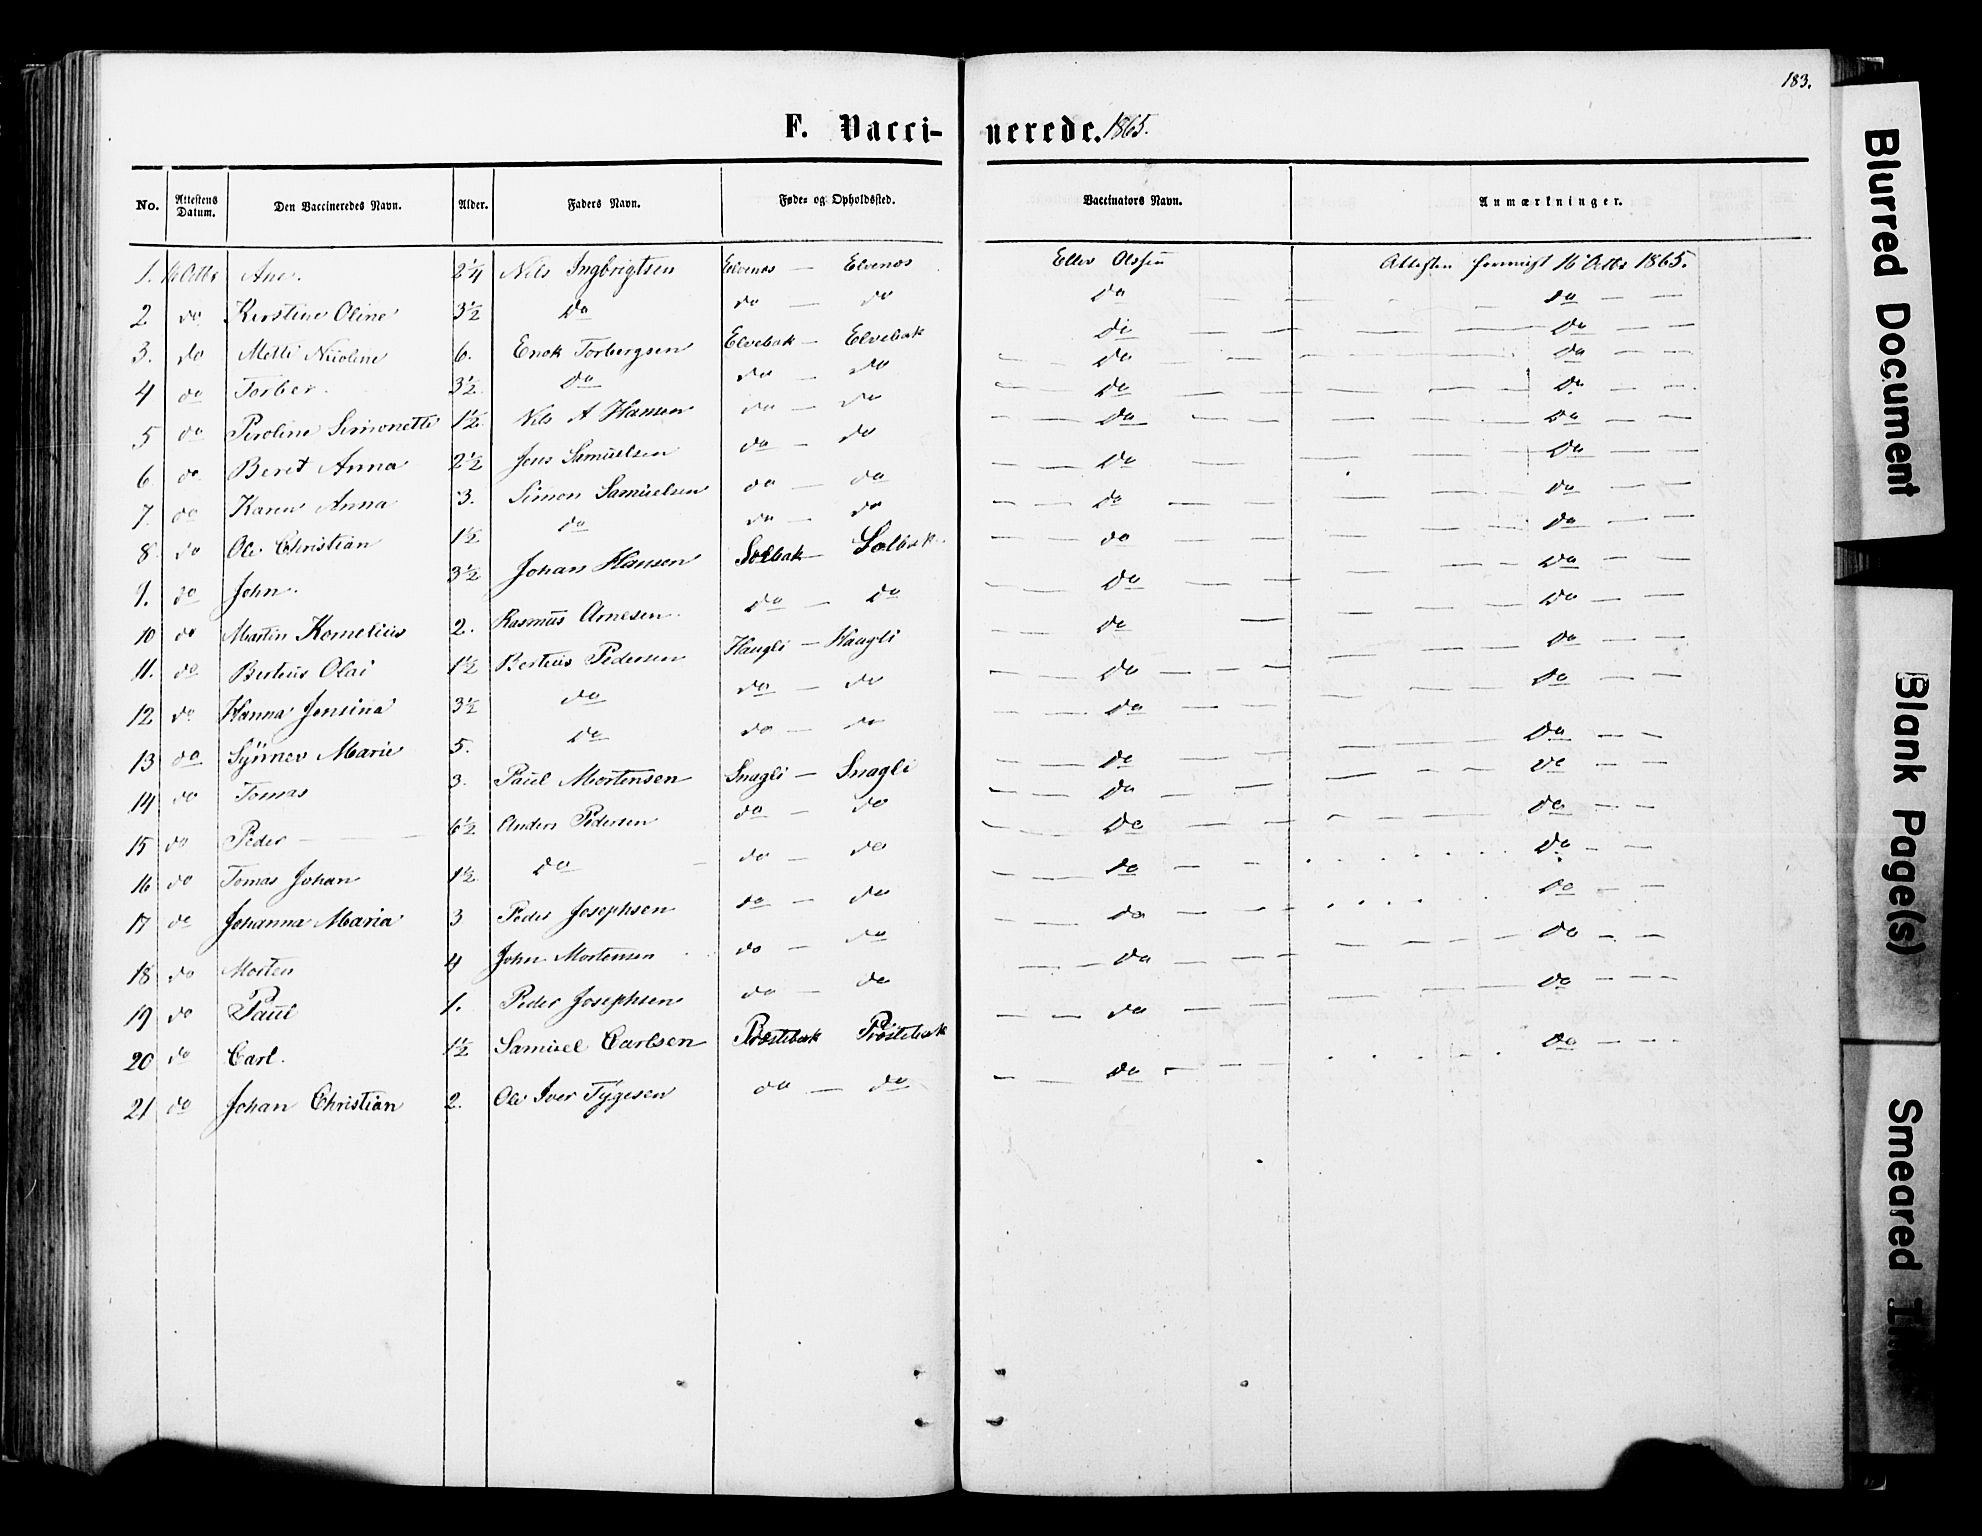 183.
F. Vacci- nerede. 1865.
No. Attestens Datum. Den Vaccineredes Navn. Alder. Faders Navn. Føde- og Opholdssted. Vaccinators Navn. Anmærkninger.
1. 16 Octbr Ane. 2¼ Nils Ingbrigtsen Elvenes — Elvenes Ellev Olssen Attesten 16 Octbr 1865.
2 do Kirstine Oline 3½ Do do — do Do — — — — — Do — —
3. do Mette Nicoline 6. Enok Torbergsen Elvebak — Elvebak Do — — — — — Do — —
4 do Torber. 3½ Do do — do — — Do — — — — Do — —
5 do Peroline Simonette 1½ Nils A Hansen do — do — — Do — — — — Do — —
6 do Beret Anna 2½ Jens Samuelsen do — do — — Do — — — — — Do — —
7. do Karen Anna 3. Simon Samuelsen do — do — — — Do — — — — — Do — —
8. do Ole Christian 1½ do do — do — — Do — — — — Do — —
9. do John. 3½ Johan Hansen Solbak — Solbak — — Do — — — — — Do — —
10 do Martin Kornelius 2. Rasmus Arnesen Do — Do — — Do — — — — — Do — —
11. do Berteus Olai 1½ Berteus Pedersen Haugli — Haugli — — Do — — — — Do — —
12 do Hanna Jensina 3½ do do — do — — Do — — — — — Do — —
13 do Synnev Marie 5. Do do — do — — — Do — — — — — Do — —
14 do Tomas 3. Paul Mortensen Snagli — Snagli — — — Do — — — — — Do — —
15 do Peder — — 6½ Anders Pedersen do — do — — Do — — — — — Do — —
16 do Tomas Johan 1½ Do do — do — — — Do — — — Do — —
17 do Johanna Maria 3 Peder Josephsen do — do — — Do — — — Do — —
18 do Morten 4 John Mortensen do — do — — Do — — — — — — Do — —
19 do Paul 1. Peder Josephsen do — do — — — Do — — — — — — Do — — —
20 do Carl. 1½ Samuel Carlsen Præstebak Præstebak — — — Do — — — Do — — —
21 do Johan Christian 2. Ole Iver Tygesen do — do — — Do — — —
Blurred Document
Blank Page(s)
Smeared